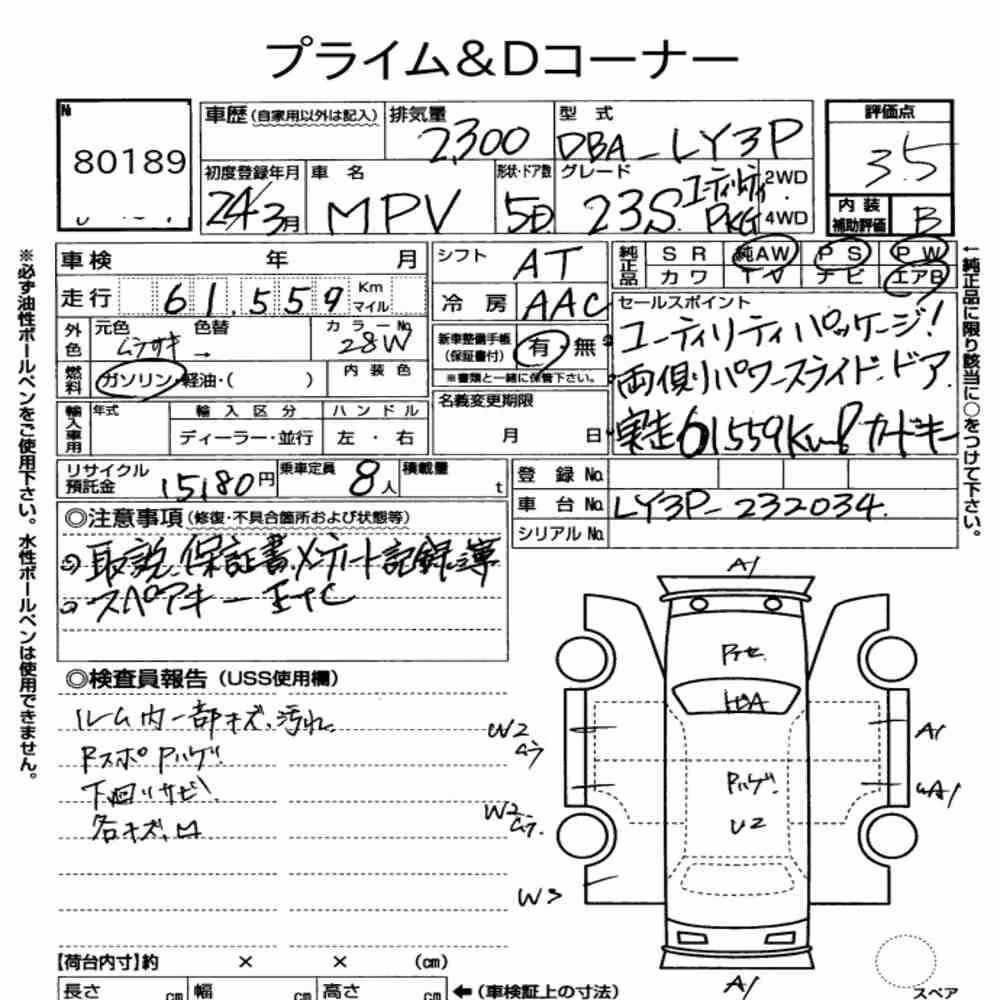 プライム&Dコーナー
№ 80189
車歴（自家用以外は記入）
排気量 2,300
型式 DBA-LY3P
評価点 3.5
初度登録年月 24/3月
車名 MPV
形状・ドア数 5D
グレード 23S ユーティリティ PKG
2WD
4WD
内装補助評価 B
車検 年 月
シフト AT
純正品 SR 純AW PS PW
カワ TV ナビ エアB
走行 61,559 Km マイル
冷房 AAC
セールスポイント
ユーティリティパッケージ!
両側パワースライドドア
実走61559Km!カードキー
外色 元色 ムラサキ 色替 → カラーNo. 28W
新車整備手帳（保証書付） 有・無
※書類と一緒に保管下さい。
燃料 ガソリン・軽油・( ) 内装色
名義変更期限 月 日
輸入車用 年式 輸入区分 ハンドル
ディーラー・並行 左・右
リサイクル預託金 15180円
乗車定員 8人
積載量 t
登録 No.
車台 No. LY3P-232034.
シリアル No.
◎注意事項（修復・不具合箇所および状態等）
取説、保証書、メンテノート記録簿
スペアキー ETC
◎検査員報告（USS使用欄）
ルーム内一部キズ、汚れ
Fスポ Pハゲ
下廻りサビ
各キズ、凹
A1
Pハゲ
U2
W2
W2
W3
A1
A1
A1
【荷台内寸】約 × × (cm)
長さ cm 幅 cm 高さ cm ←（車検証上の寸法）
スペア
※必ず油性ボールペンをご使用下さい。水性ボールペンは使用できません。
←純正品に限り該当に○をつけて下さい。